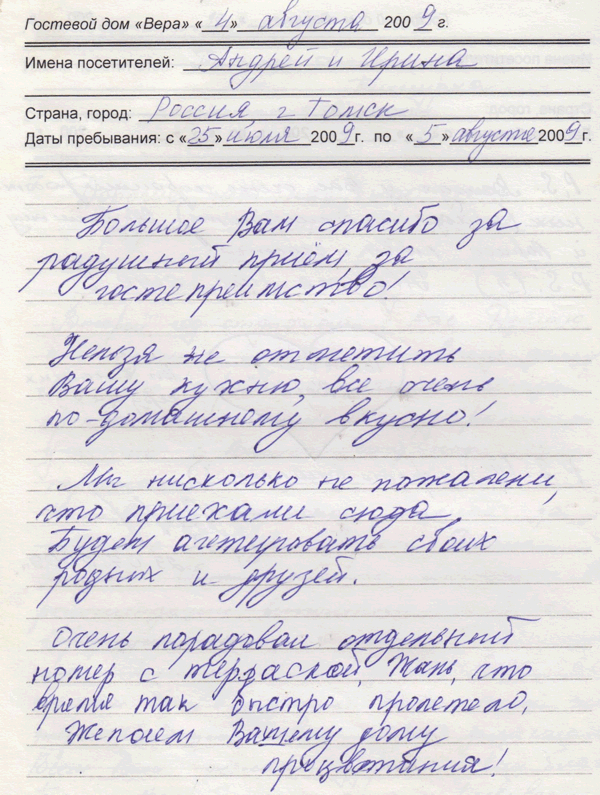 Гостевой дом «Вера» «4» августа 2009 г.
Имена посетителей: Андрей и Ирина
Страна, город: Россия, г Томск
Даты пребывания: с «25» июля 2009 г. по «5» августа 2009 г.
Большое Вам спасибо за
радушный приём, за
гостепреимство!
Нельзя не отметить
Вашу кухню, все очень
по-домашнему вкусно!
Мы нисколько не пожалели,
что приехали сюда
Будем агетировать своих
родных и друзей.
Очень порадовал отдельный
номер с террасой, Жаль, что
время так быстро пролетело,
Желаем Вашему дому
процветания!